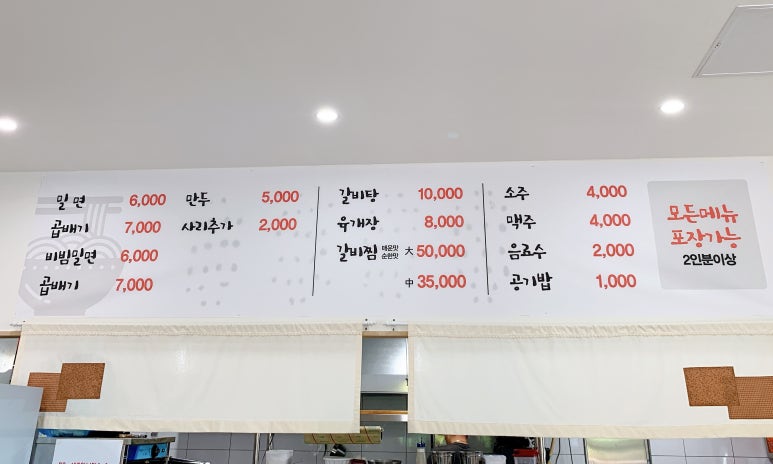 밀면 6,000
곱배기 7,000
비빔밀면 6,000
곱배기 7,000
만두 5,000
사리추가 2,000
갈비탕 10,000
육개장 8,000
갈비찜 매운맛 순한맛 大 50,000
中 35,000
소주 4,000
맥주 4,000
음료수 2,000
공기밥 1,000
모든메뉴
포장가능
2인분이상